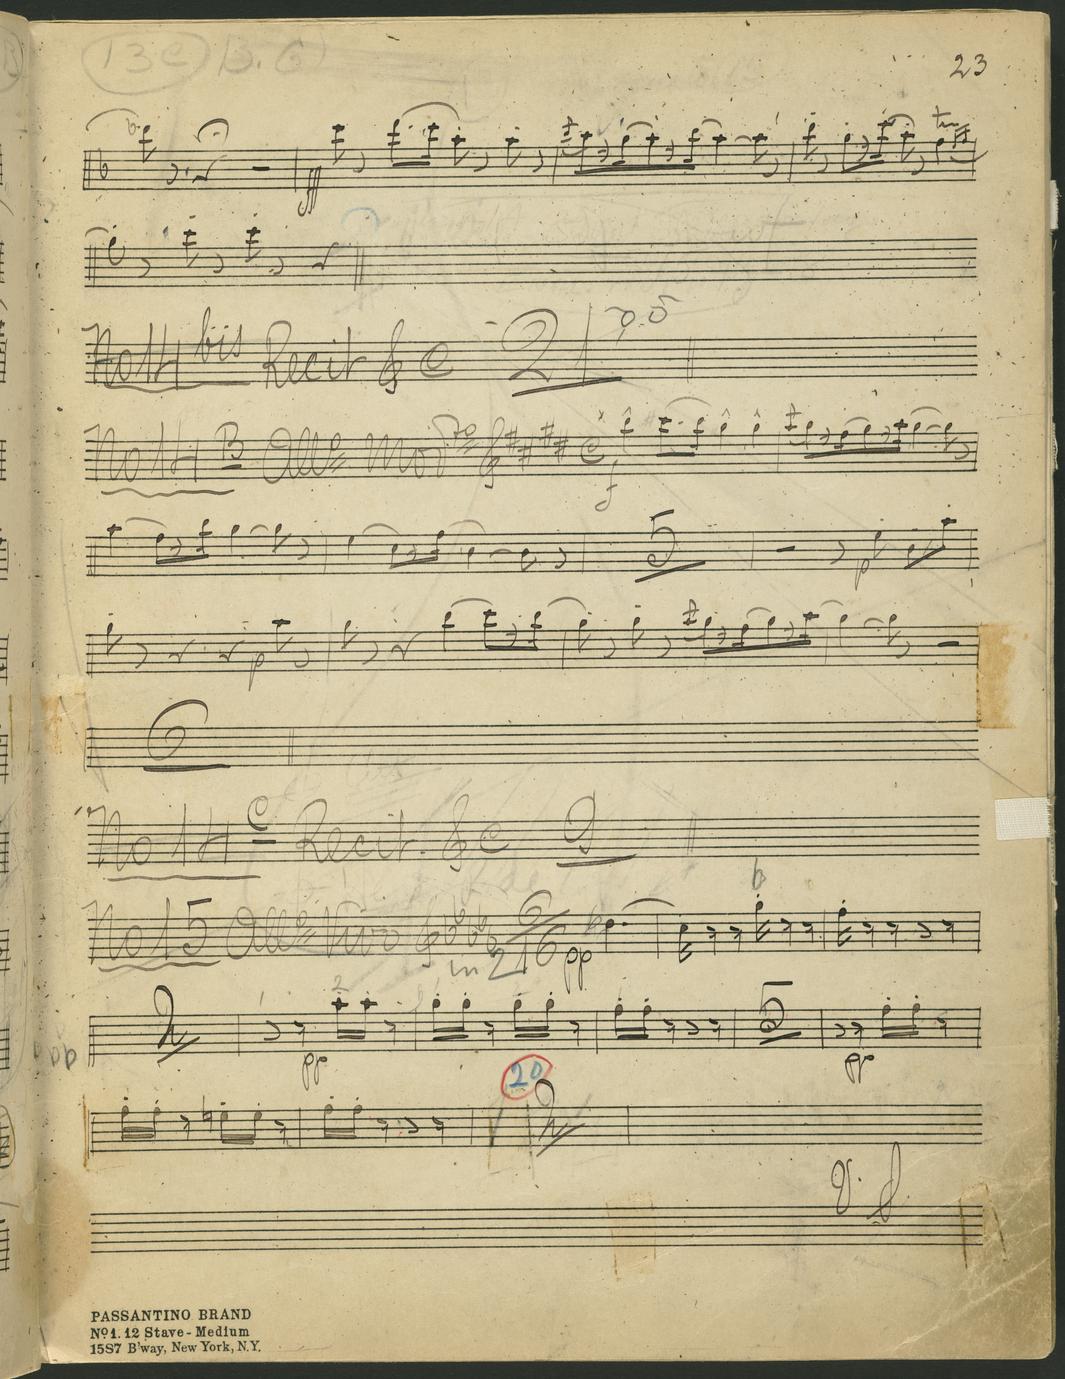 13C B.G
23
fff tr
No 14 bis Recit C 21
No 14 B Allo Modto C f
5 p
p
6
No 14 C Recit. C 9
No 15 Allo Vivo 6/16 in 2 pp
pp 2 pp 2 5 pp
20
2
V. S.
PASSANTINO BRAND
No 1. 12 Stave - Medium
1587 B'way, New York, N.Y.